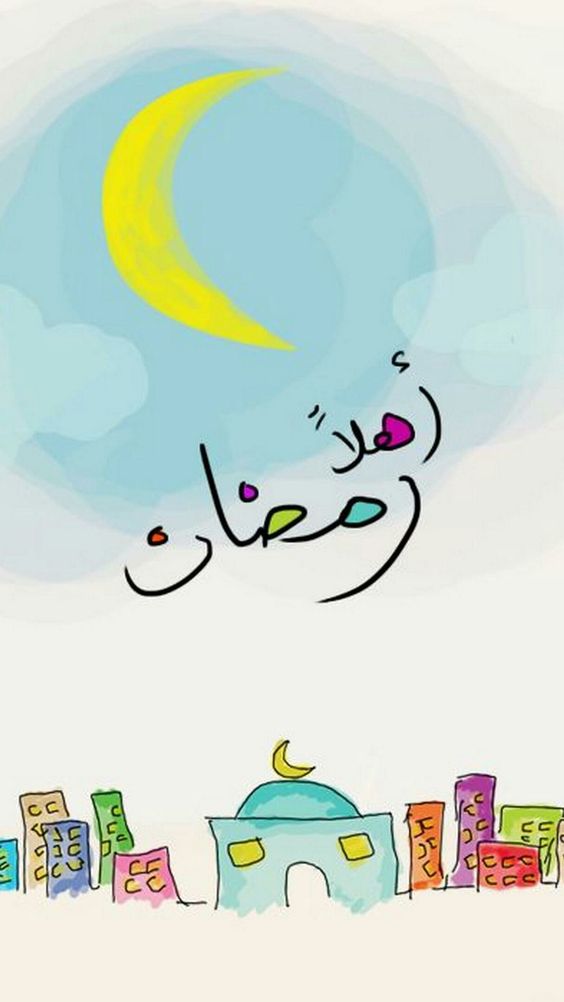 أهلاً
رمضان